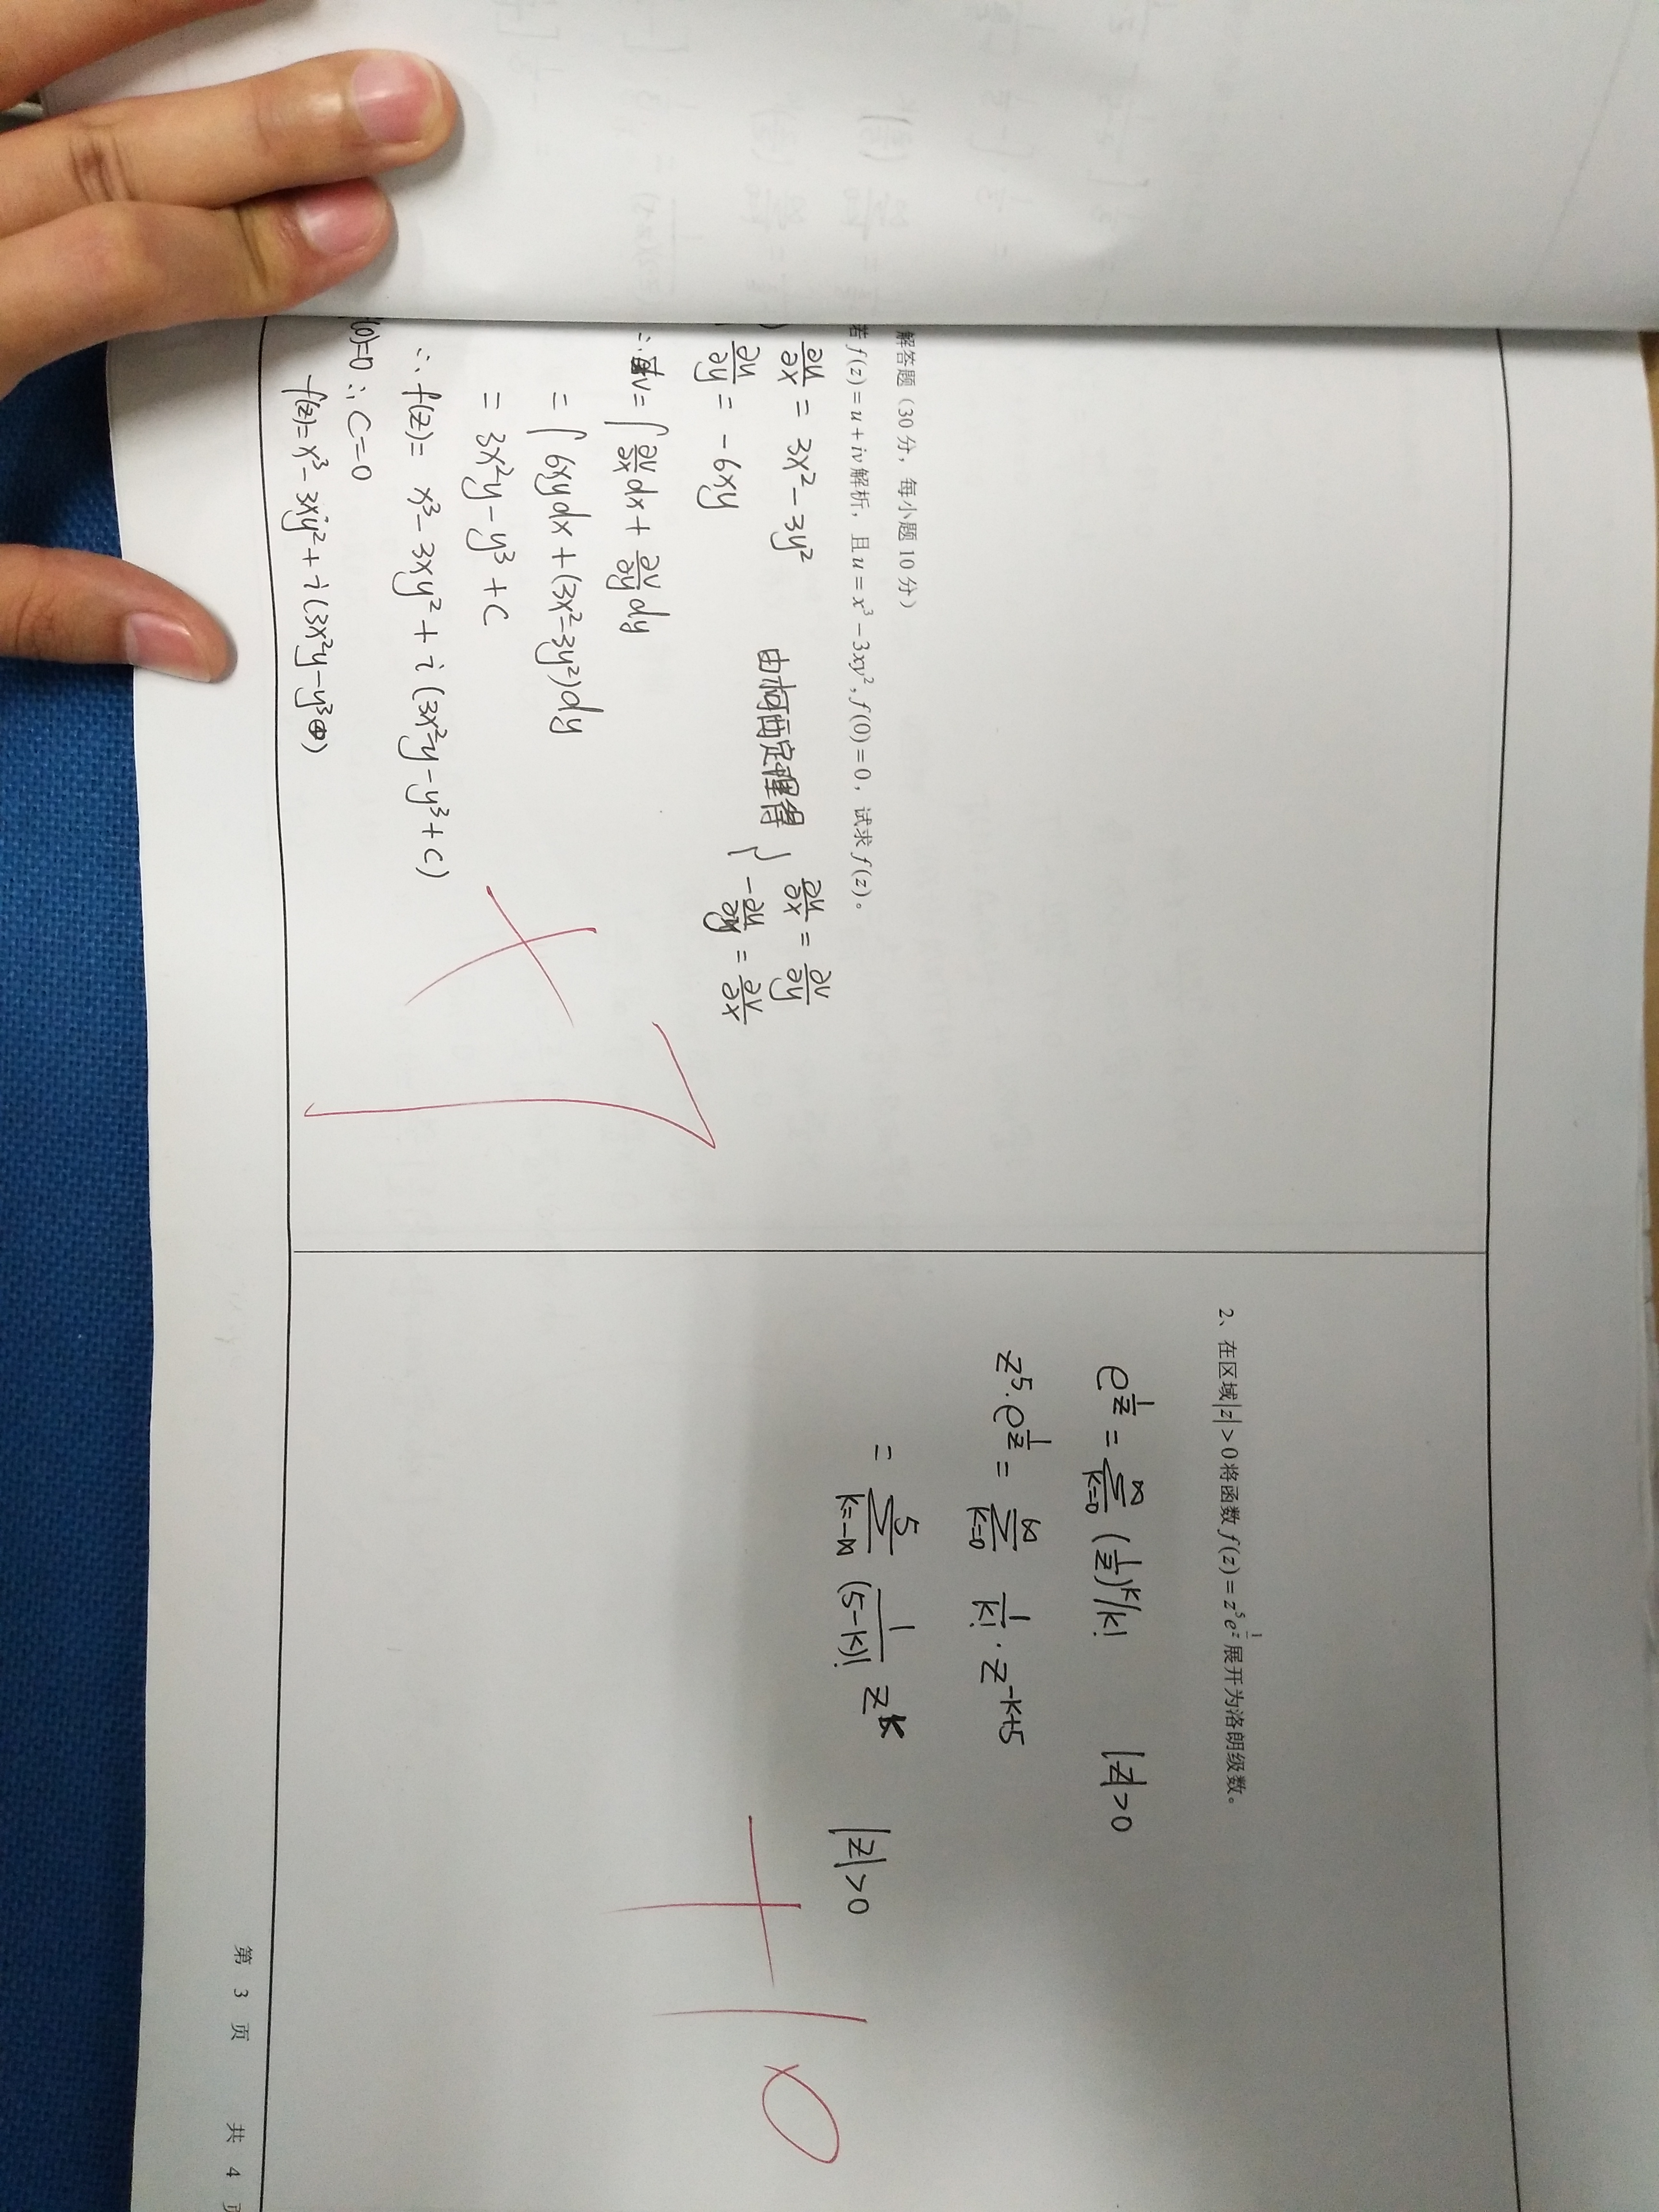 解答题（30 分，每小题 10 分）
若 f(z) = u + iv 解析，且 u = x³ − 3xy², f(0) = 0，试求 f(z)。
∂u/∂x = 3x² − 3y²
∂u/∂y = −6xy
由柯西定理得 { ∂u/∂x = ∂v/∂y
−∂u/∂y = ∂v/∂x
∴ v = ∫ ∂v/∂x dx + ∂v/∂y dy
= ∫ 6xy dx + (3x² − 3y²) dy
= 3x²y − y³ + C
∴ f(z) = x³ − 3xy² + i (3x²y − y³ + C)
(0)=0 ∴ C = 0
f(z) = x³ − 3xy² + i (3x²y − y³)
+7
2、在区域 |z| > 0 将函数 f(z) = z⁵e^(1/z) 展开为洛朗级数。
e^(1/z) = ∑_{k=0}^{∞} (1/z)^k/k! |z|>0
z⁵·e^(1/z) = ∑_{k=0}^{∞} 1/k! · z^(−k+5)
= ∑_{k=−∞}^{5} 1/(5−k)! z^k |z|>0
+10
第 3 页 共 4 页